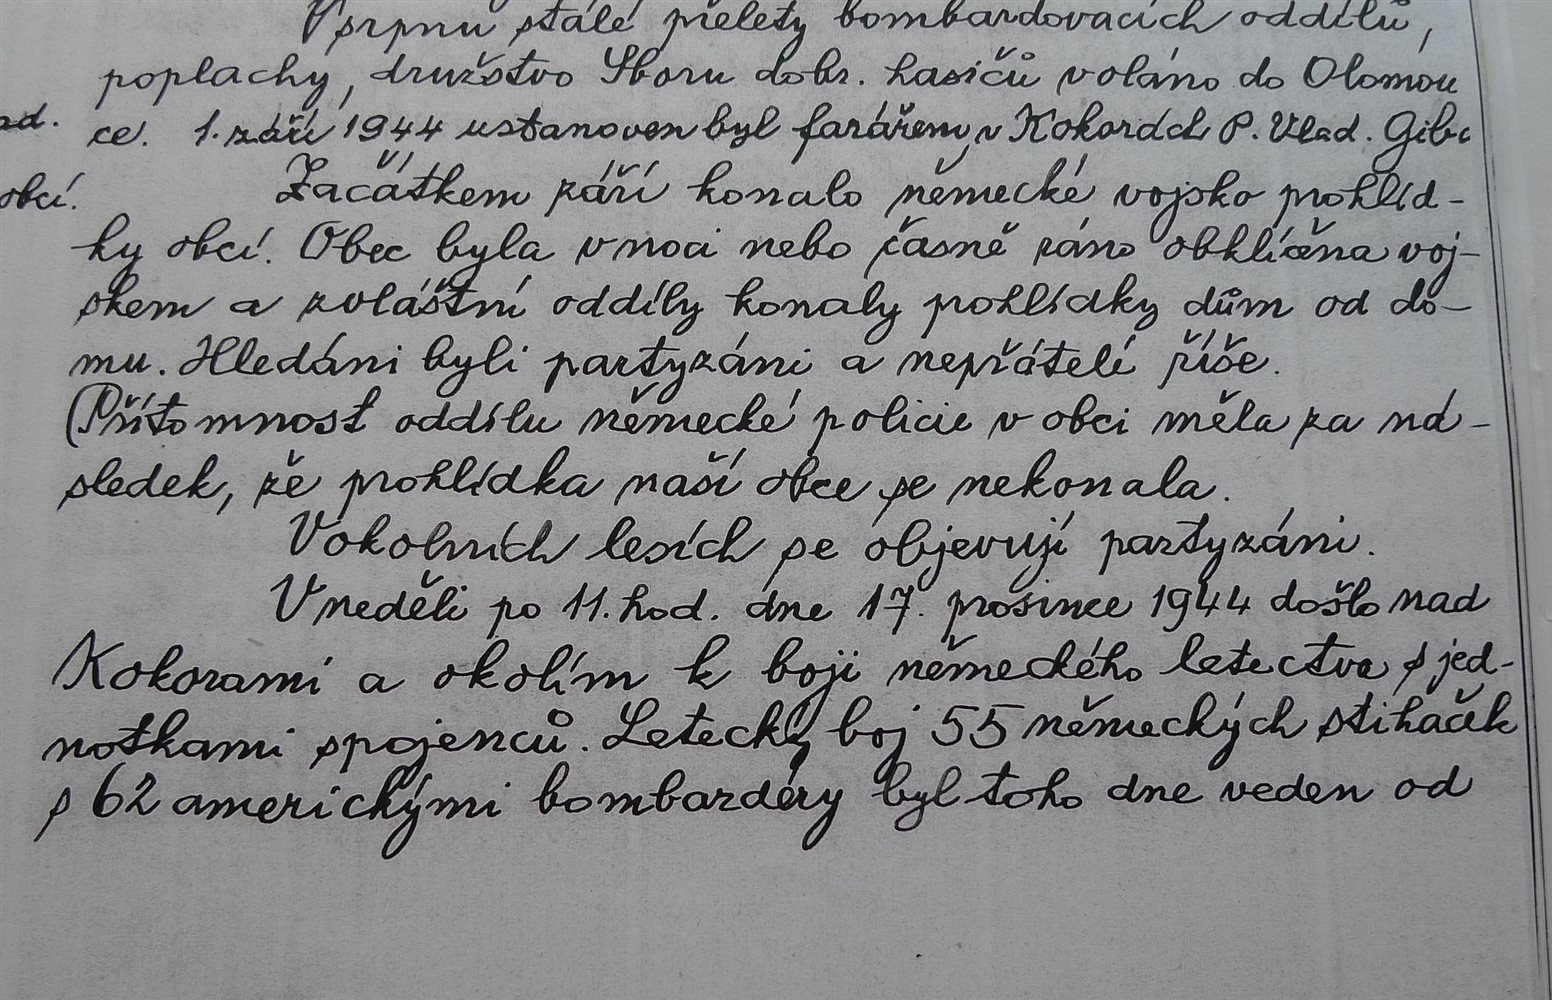 V srpnu stálé přelety bombardovacích oddílů,
poplachy, družstvo Sboru dobr. hasičů voláno do Olomou
ce. 1. září 1944 ustanoven byl farářem v Kokorách P. Vlad. Giba
obcí.
Začátkem září konalo německé vojsko prohlíd-
ky obcí. Obec byla v noci nebo časně ráno obklíčena voj-
skem a zvláštní oddíly konaly prohlídky dům od do-
mu. Hledáni byli partyzáni a nepřátelé říše.
(Přítomnost oddílu německé policie v obci měla za ná-
sledek, že prohlídka naší obce se nekonala.
V okolních lesích se objevují partyzáni.
V neděli po 11. hod. dne 17. prosince 1944 došlo nad
Kokorami a okolím k boji německého letectva s jed-
notkami spojenců. Letecký boj 55 německých stihaček
s 62 americkými bombardéry byl toho dne veden od